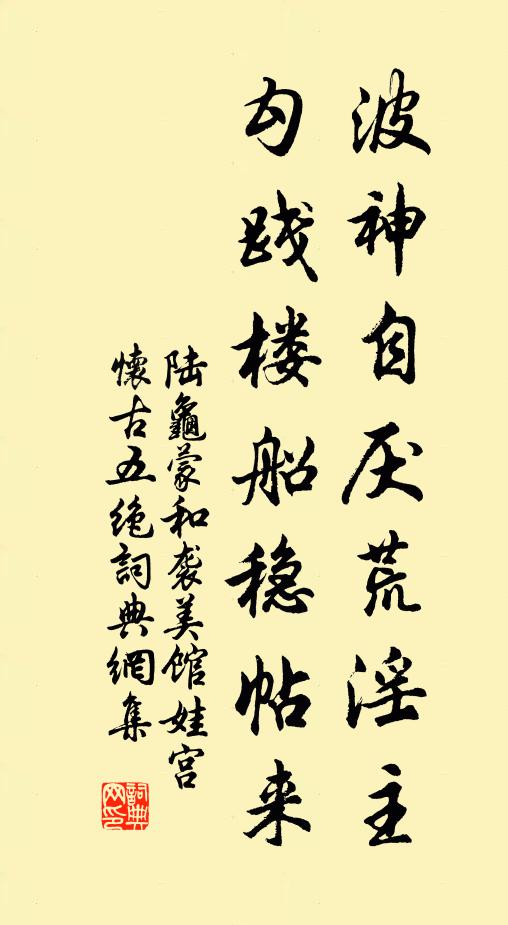 波神自厌荒淫主
勾践楼船稳帖来
陆龜蒙和袭美馆娃宫
懷古五绝詞典網集
詞典网印